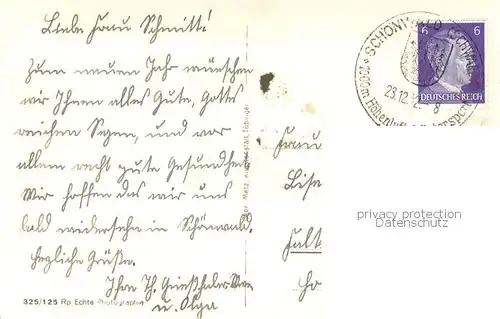 Liebe Frau Schmitt!
Zum neuen Jahr wünschen
wir Ihnen alles Gute, Gottes
reichen Segen, und vor
allem recht gute Gesundheit.
Wir hoffen das wir uns
bald wiedersehn in Schönwald.
Herzliche Grüße.
Ihre Th.
u. Olga
325/125 Rp. Echte Photographie
Metz, Tübingen
Frau
Lise
SCHONWALD
SCHWARZW
1000 m Höhenluft
23.12.
8
6 6
DEUTSCHES REICH
privacy protection
Datenschutz